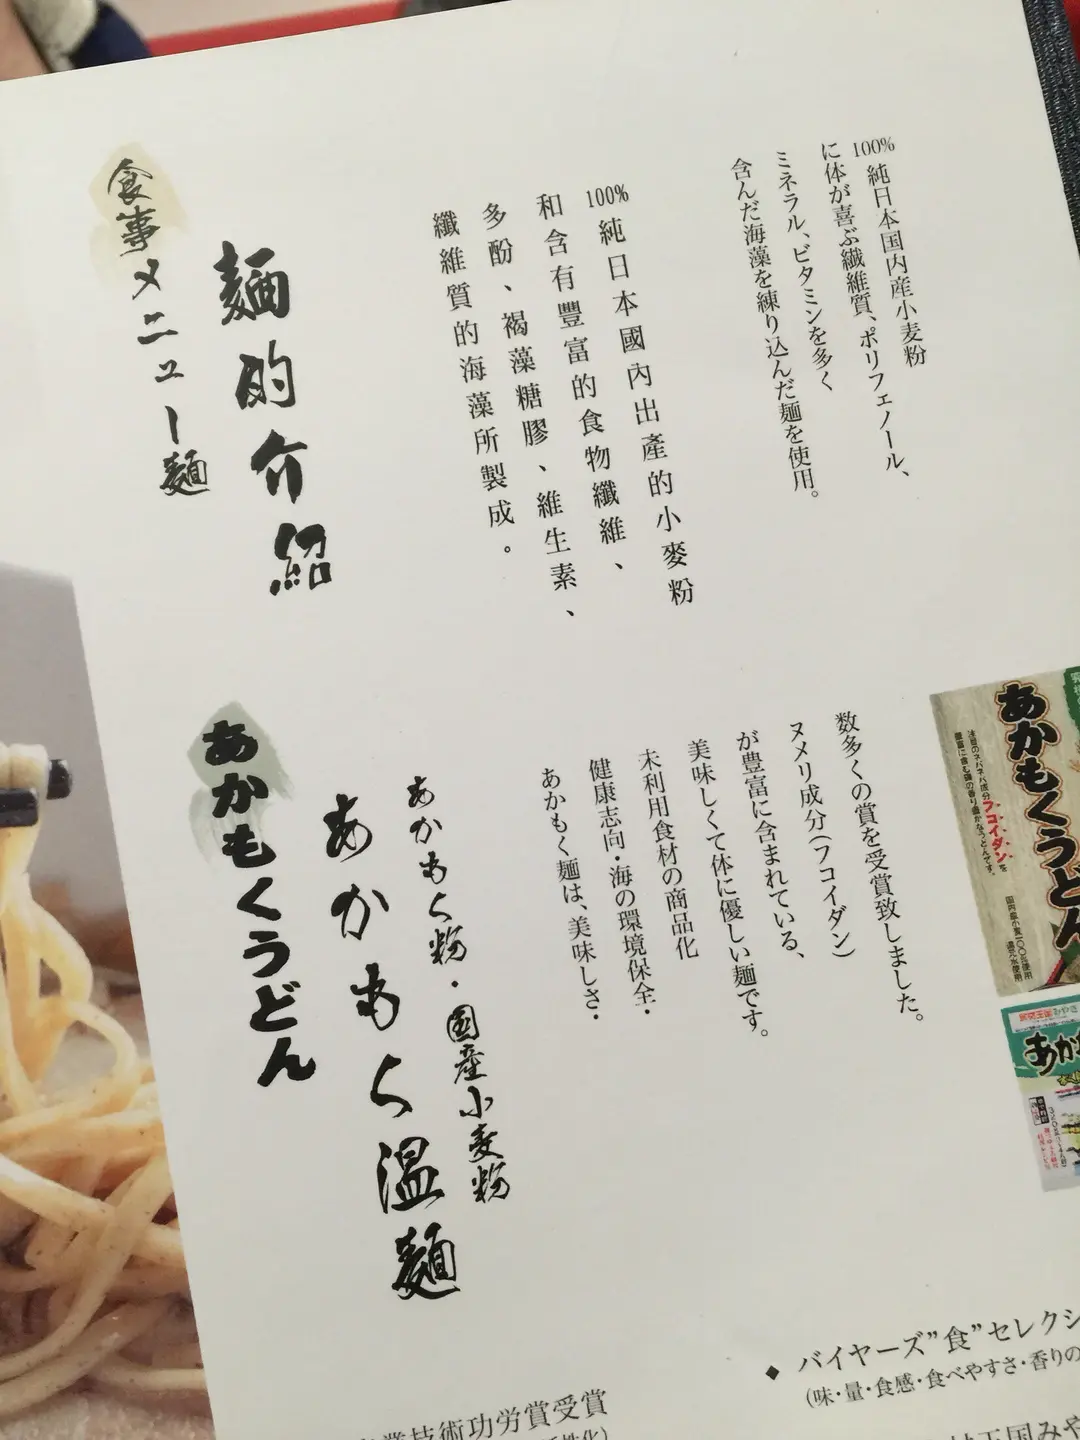 100%純日本国内産小麦粉
に体が喜ぶ繊維質、ポリフェノール、
ミネラル、ビタミンを多く
含んだ海藻を練り込んだ麺を使用。
100%純日本國內出產的小麥粉
和含有豐富的食物纖維、
多酚、褐藻糖膠、維生素、
纖維質的海藻所製成。
麺的介紹
食事メニュー麺
数多くの賞を受賞致しました。
ヌメリ成分(フコイダン)
が豊富に含まれている、
美味しくて体に優しい麺です。
未利用食材の商品化
健康志向・海の環境保全・
あかもく麺は、美味しさ・
あかもく粉・国産小麦粉
あかもく温麺
あかもくうどん
あかもくうどん
注目のネバネバ成分フコイダンを
豊富に含む
国内産小麦100%使用
還元水使用
バイヤーズ"食"セレクシ
(味・量・食感・食べやすさ・香りの
業技術功労賞受賞
性化)
王国みや